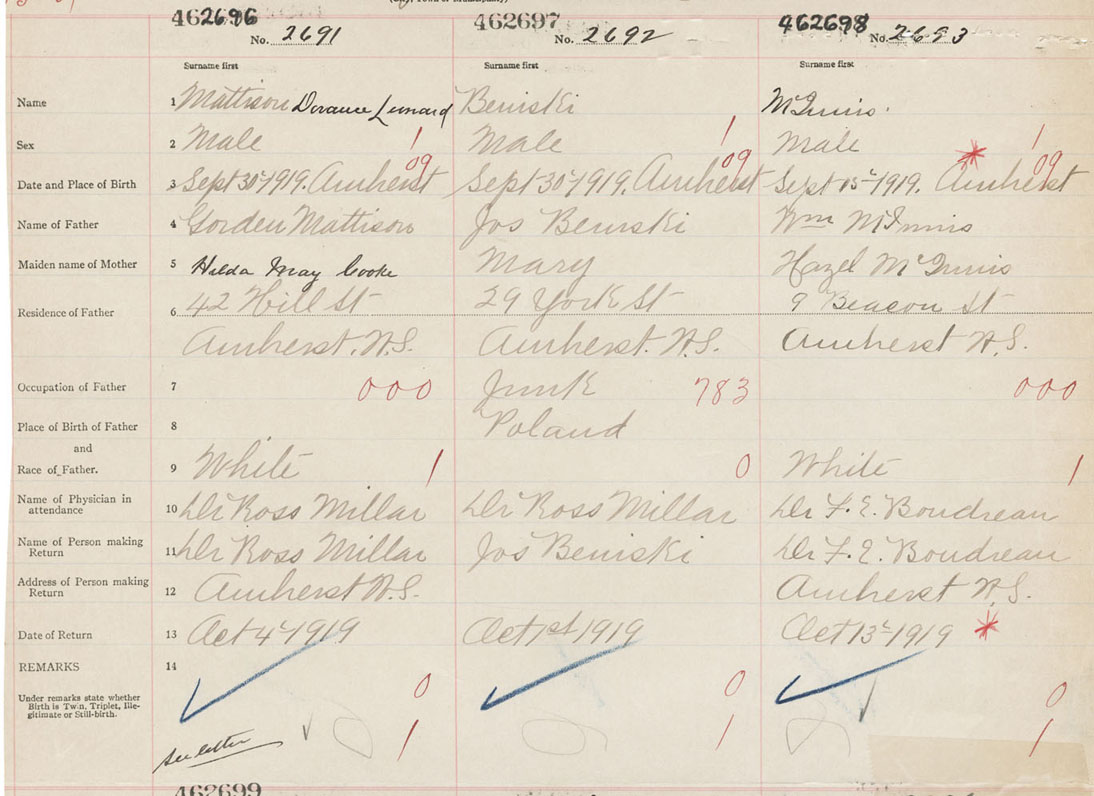 (City, Town or Municipality)
462696 462697 462698
No. 2691 No. 2692 No. 2693
Surname first Surname first Surname first
Name 1 Mattison Dorance Leonard Beniski McInnis.
Sex 2 Male 1 Male 1 Male 1
Date and Place of Birth 3 Sept 30th 1919. Amherst 09 Sept 30th 1919. Amherst 09 Sept 15th 1919. Amherst 09
Name of Father 4 Gorden Mattison Jos Beniski Wm McInnis
Maiden name of Mother 5 Hilda May Cooke Mary Hazel McInnis
Residence of Father 6 42 Hill St 29 York St 9 Beacon St
Amherst. N.S. Amherst. N.S. Amherst N.S.
Occupation of Father 7 000 Junk 783 000
Place of Birth of Father 8 Poland
and
Race of Father. 9 White 1 0 White 1
Name of Physician in
attendance 10 Dr Ross Millar Dr Ross Millar Dr F. E. Boudreau
Name of Person making
Return 11 Dr Ross Millar Jos Beniski Dr F. E. Boudreau
Address of Person making
Return 12 Amherst N.S. Amherst N.S.
Date of Return 13 Oct 4th 1919 Oct 1st 1919 Oct 13th 1919
REMARKS 14
Under remarks state whether
Birth is Twin, Triplet, Ille-
gitimate or Still-birth.
0 0 0
1 1 1
see letter
462699